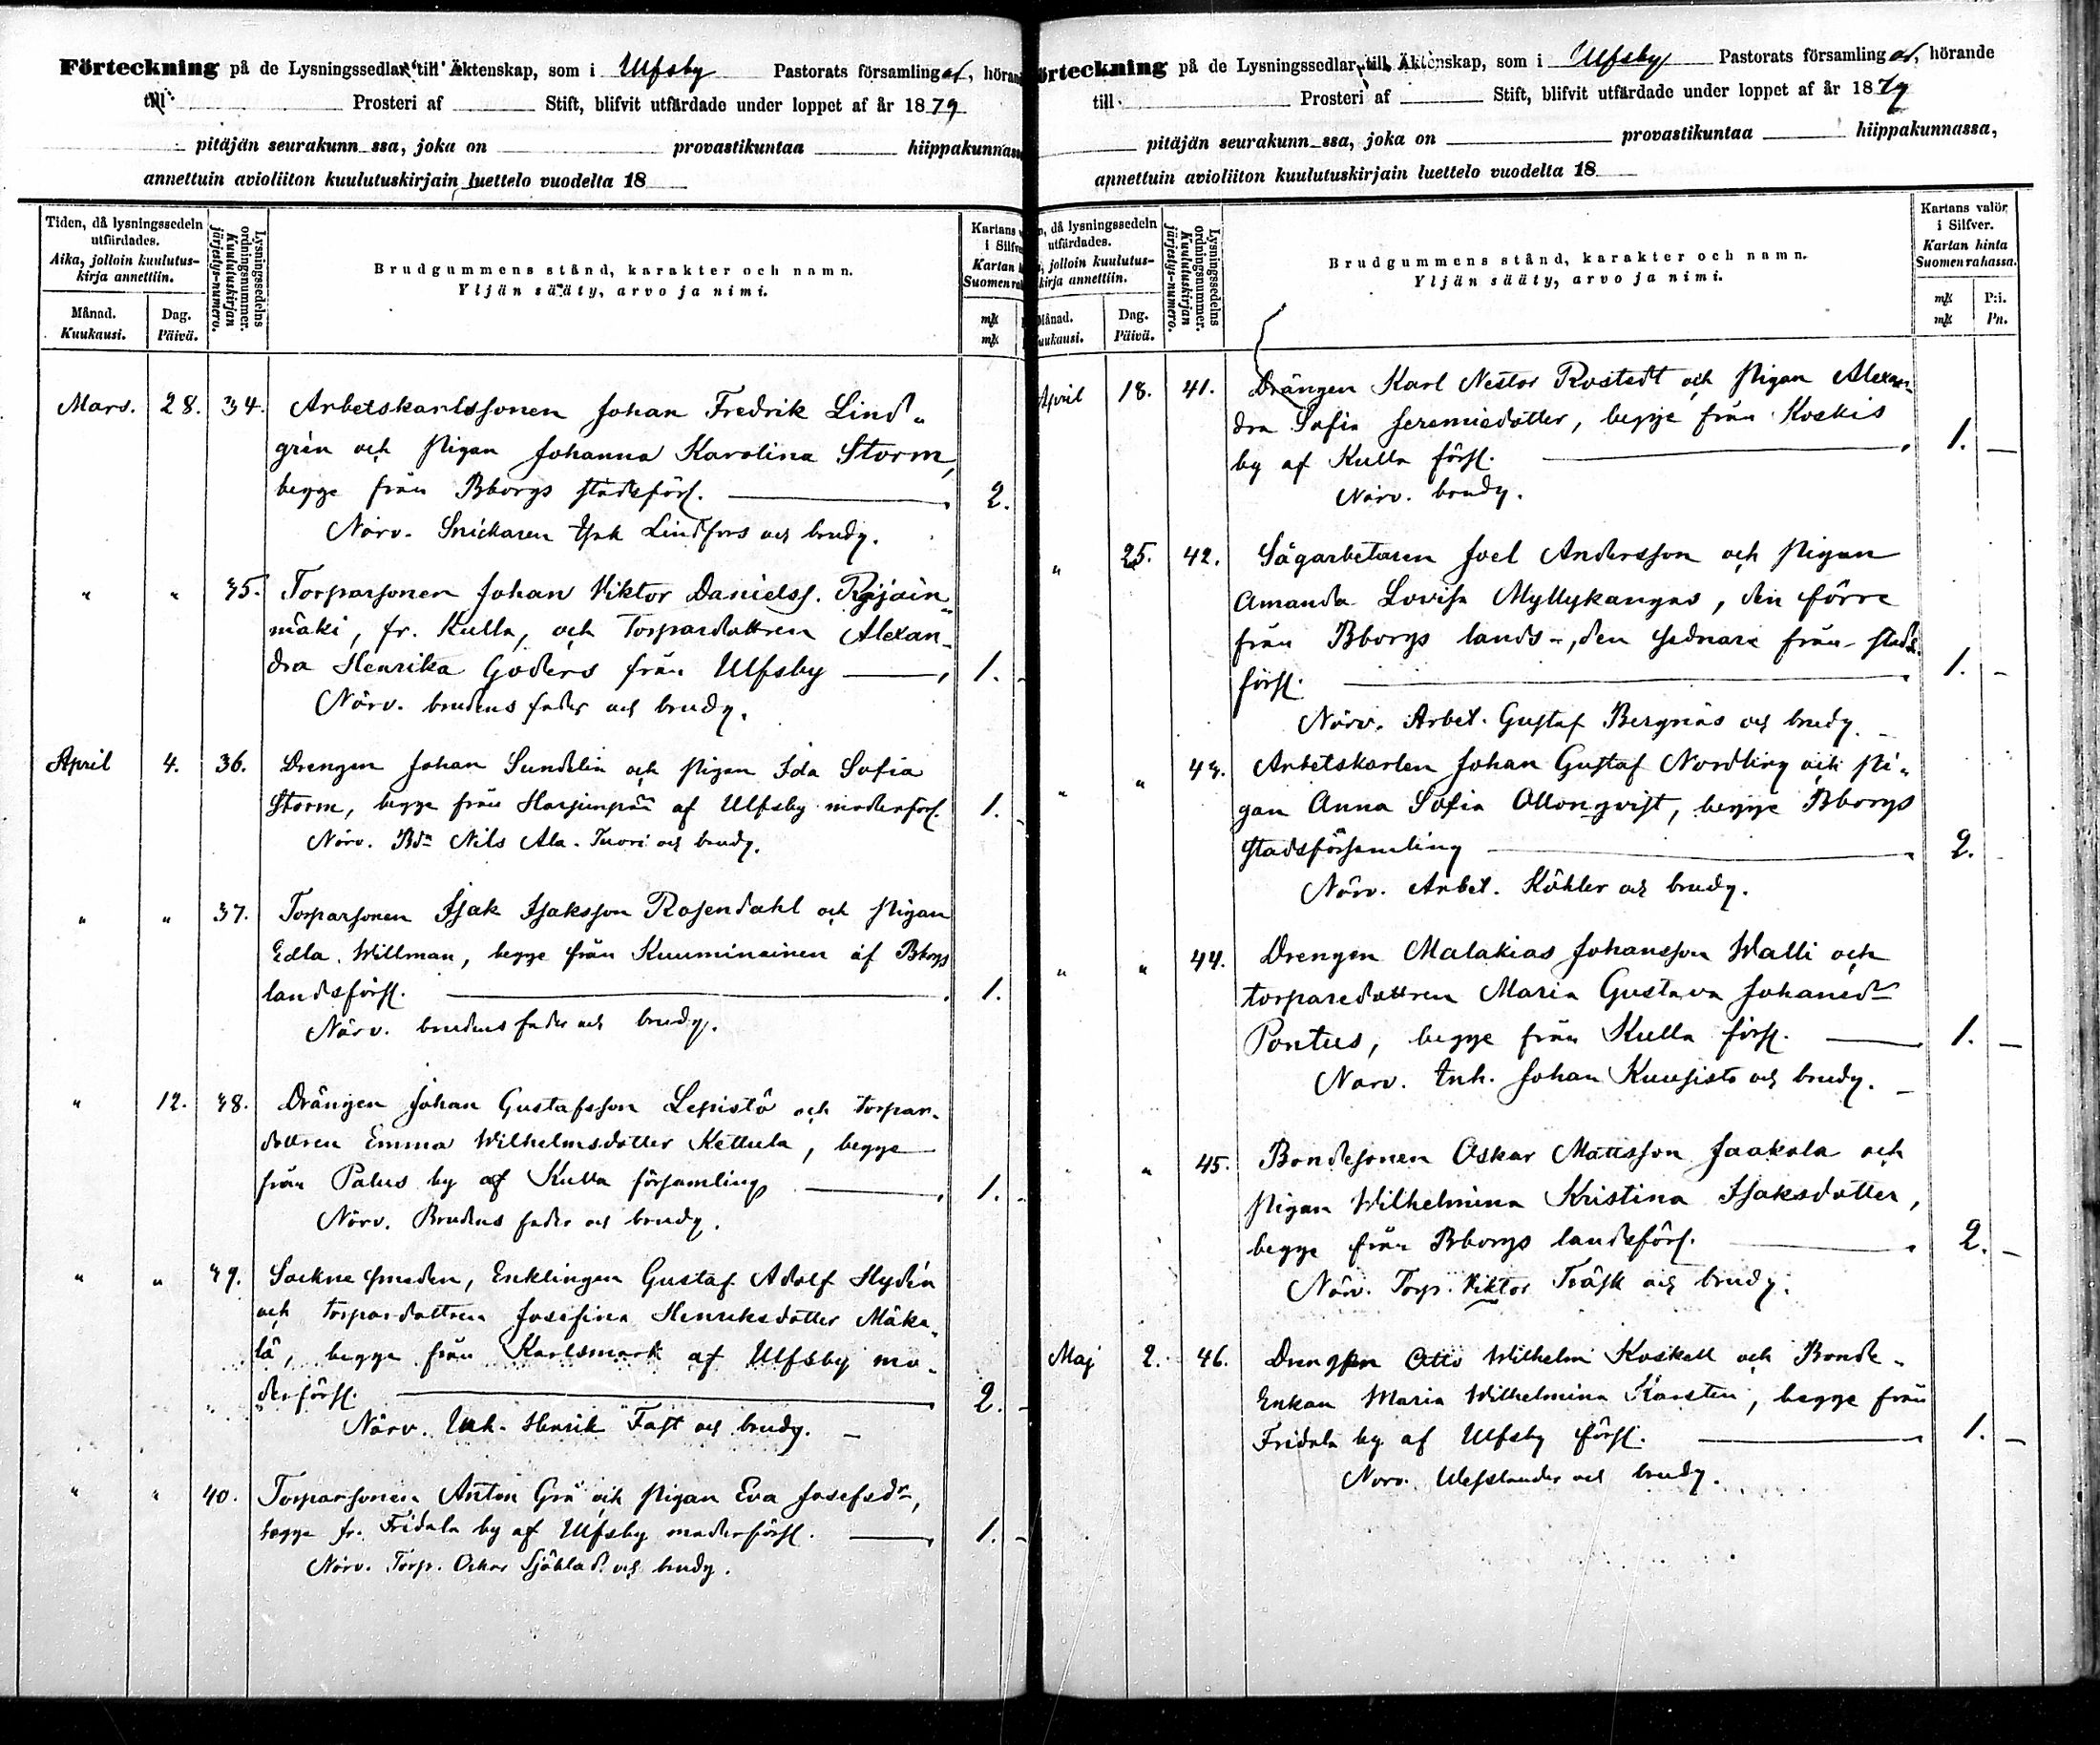 Förteckning på de Lysningssedlar till Äktenskap, som i Ulfsby Pastorats församlingar, hörande
till Prosteri af Stift, blifvit utfärdade under loppet af år 1879
pitäjän seurakunn ssa, joka on provastikuntaa hiippakunnassa
annettuin avioliiton kuulutuskirjain luettelo vuodelta 18
Tiden, då lysningssedeln
utfärdades.
Aika, jolloin kuulutus-
kirja annettiin.
Månad.
Kuukausi.
Dag.
Päivä.
Lysningssedelns
ordningsnummer.
Kuulutuskirjan
järjestys-numero.
Brudgummens stånd, karakter och namn.
Yljän sääty, arvo ja nimi.
Kartans
i Silfver
Kartan
Suomen
mk
mk
Mars. 28. 34. Arbetskarlssonen Johan Fredrik Lind-
grén och pigan Johanna Karolina Storm,
begge från Bborgs stadsförs. 2.
Närv. Snickaren Isak Lindfors och brudg.
" " 35. Torparsonen Johan Viktor Danielss. Rajain-
mäki, fr. Kulla, och Torpardottren Alexan-
dra Henrika Goders från Ulfsby 1.
Närv. brudens fader och brudg.
April 4. 36. Drengen Johan Sundelin och pigan Ida Sofia
Storm, begge från Harjunpää af Ulfsby moderförs. 1.
Närv. Bdn Nils Ala-Juori och brudg.
" " 37. Torparsonen Isak Isaksson Rosendahl och pigan
Edla Willman, begge från Kuuminainen af Bborgs
landsförs. 1.
Närv. brudens fader och brudg.
" 12. 38. Drängen Johan Gustafsson Lepistö och torpar-
dottren Emma Wilhelmsdotter Kettula, begge
från Palus by af Kulla församling 1.
Närv. Brudens fader och brudg.
" " 39. Socknesmeden, Enklingen Gustaf Adolf Hydén
och torpardottren Josefina Henriksdotter Mäke-
lä, begge från Karlsmark af Ulfsby mo-
derförs. 2.
Närv. Inh. Henrik Fast och brudg.
" " 40. Torparsonen Anton Grå och pigan Eva Josefsdr,
begge fr. Fridala by af Ulfsby moderförs. 1.
Närv. Torp. Oskar Sjöblad och brudg.
Förteckning på de Lysningssedlar till Äktenskap, som i Ulfsby Pastorats församlingar, hörande
till Prosteri af Stift, blifvit utfärdade under loppet af år 1879
pitäjän seurakunn ssa, joka on provastikuntaa hiippakunnassa,
annettuin avioliiton kuulutuskirjain luettelo vuodelta 18
då lysningssedeln
utfärdades.
jolloin kuulutus-
kirja annettiin.
Månad.
Kuukausi.
Dag.
Päivä.
Lysningssedelns
ordningsnummer.
Kuulutuskirjan
järjestys-numero.
Brudgummens stånd, karakter och namn.
Yljän sääty, arvo ja nimi.
Kartans valör
i Silfver.
Kartan hinta
Suomen rahassa.
mk P:i.
mk Pn.
April 18. 41. Drängen Karl Nestor Rostedt och pigan Alexan-
dra Sofia Jeremiedotter, begge från Koskis
by af Kulla förs. 1. —
Närv. brudg.
" 25. 42. Sågarbetaren Joel Andersson och pigan
Amanda Lovisa Myllykangas, den förre
från Bborgs lands-, den sednare från stads-
förs. 1. -
Närv. Arbet. Gustaf Bergnäs och brudg.
" " 43. Arbetskarlen Johan Gustaf Nordling och pi-
gan Anna Sofia Ollonqvist, begge Bborgs
stadsförsamling 2. -
Närv. Arbet. Köhler och brudg.
" " 44. Drengen Malakias Johansson Walli och
torparedottren Maria Gustava Johansdr
Pontus, begge från Kulla förs. 1. —
Närv. Inh. Johan Kuusisto och brudg.
" " 45. Bondesonen Oskar Mattsson Jaakola och
pigan Wilhelmina Kristina Isaksdotter,
begge från Bborgs landsförs. 2. —
Närv. Torp. Viktor Träsk och brudg.
Maj 2. 46. Drengen Otto Wilhelm Koskell och Bonde-
Enkan Maria Wilhelmina Karsten, begge från
Fridala by af Ulfsby förs. 1. —
Närv. och brudg.